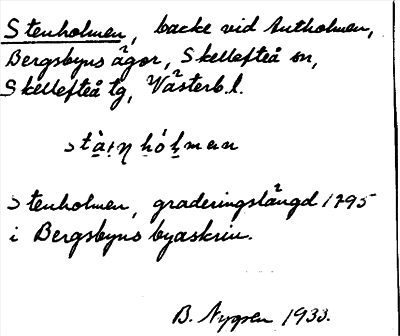 Stenholmen, backe vid Antholmen,
Bergsbyns ägor, Skellefteå sn,
Skellefteå tg, Västerb.l.
Stenholmen, graderingslängd 1795
i Bergsbyns byaskrin.
B. Nygren 1933.